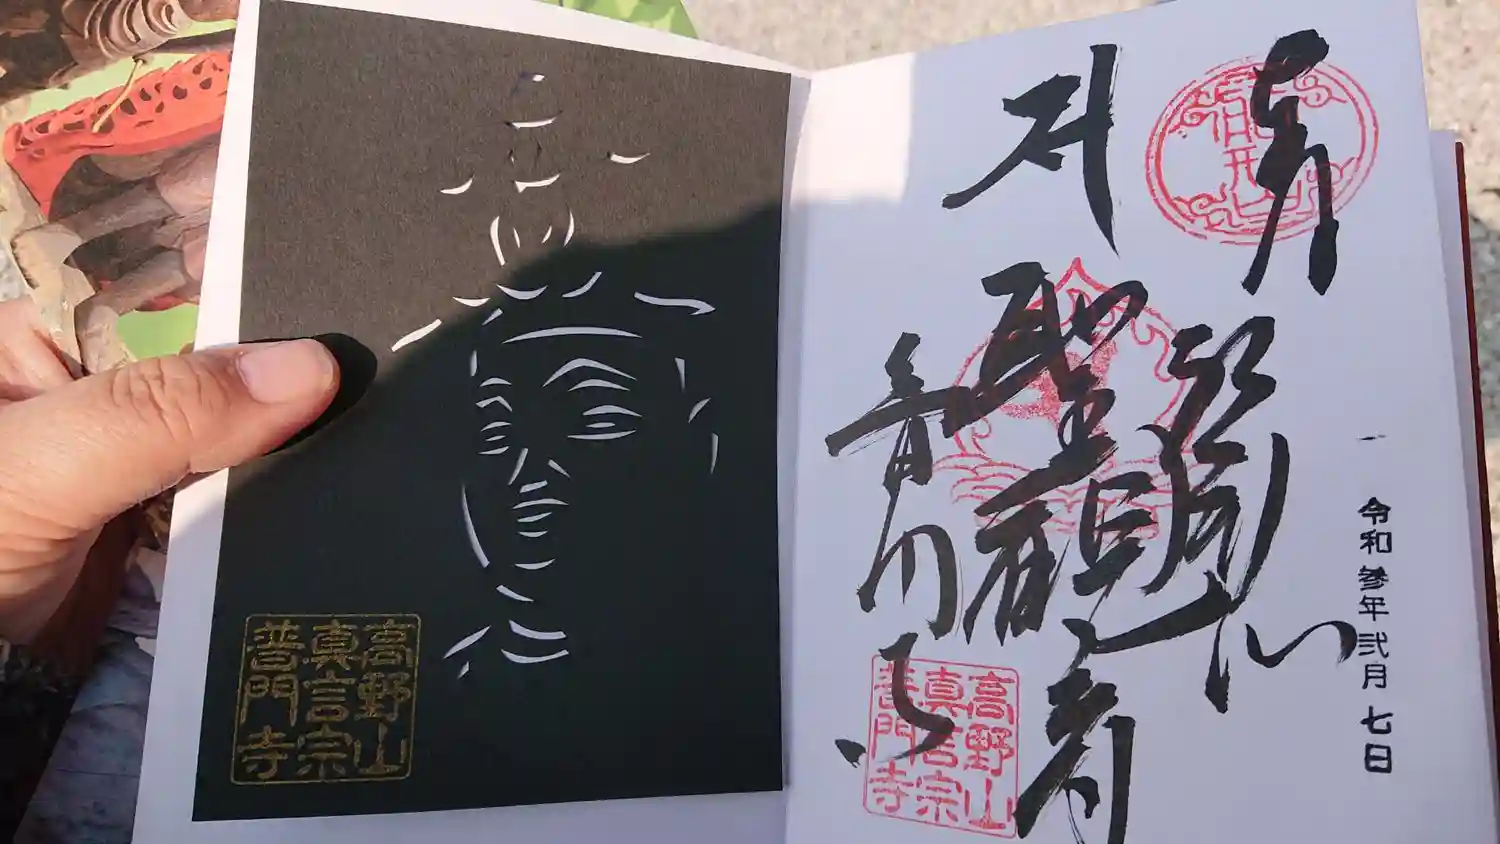 高野山
真言宗
普門寺
令和参年弐月七日
奉
拝
聖観音
普門寺
高野山
真言宗
普門寺